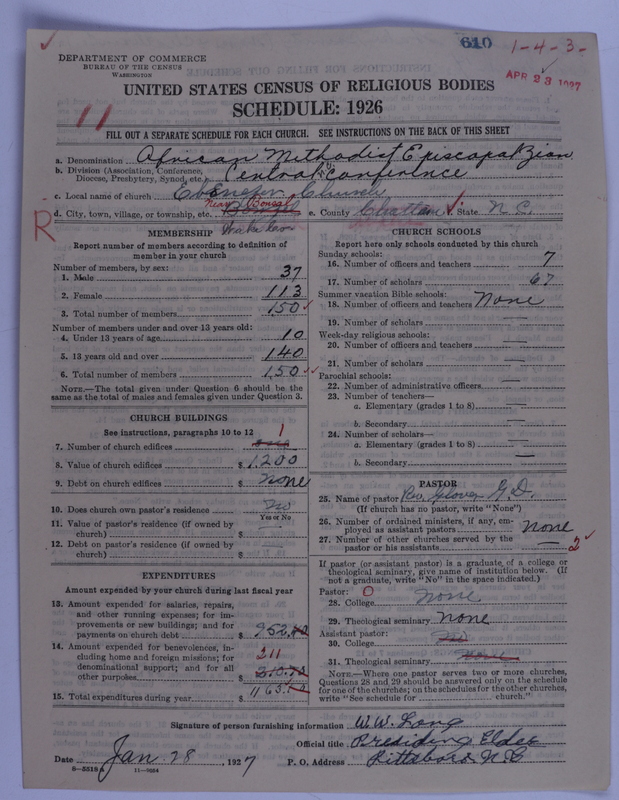 610
1-4-3-
DEPARTMENT OF COMMERCE
BUREAU OF THE CENSUS
WASHINGTON
APR 23 1927
UNITED STATES CENSUS OF RELIGIOUS BODIES
SCHEDULE: 1926
11
FILL OUT A SEPARATE SCHEDULE FOR EACH CHURCH. SEE INSTRUCTIONS ON THE BACK OF THIS SHEET
a. Denomination African Methodist Episcopal Zion
b. Division (Association, Conference, Diocese, Presbytery, Synod, etc.) Central Conference
c. Local name of church Ebenezer Church
d. City, town, village, or township, etc. Near Bonsal e. County Chatham State N.C.
R
MEMBERSHIP
Report number of members according to definition of
member in your church
Number of members, by sex:
1. Male 37
2. Female 113
3. Total number of members 150
Number of members under and over 13 years old:
4. Under 13 years of age 10
5. 13 years old and over 140
6. Total number of members 150
NOTE.—The total given under Question 6 should be the
same as the total of males and females given under Question 3.
CHURCH BUILDINGS
See instructions, paragraphs 10 to 12
7. Number of church edifices 1
8. Value of church edifices $ 1200
9. Debt on church edifices $ none
10. Does church own pastor's residence no
Yes or No
11. Value of pastor's residence (if owned by
church) $
12. Debt on pastor's residence (if owned by
church) $
EXPENDITURES
Amount expended by your church during last fiscal year
13. Amount expended for salaries, repairs,
and other running expenses; for im-
provements or new buildings; and for
payments on church debt $ 952.
14. Amount expended for benevolences, in-
cluding home and foreign missions; for
denominational support; and for all
other purposes $ 211
15. Total expenditures during year $ 1163.
CHURCH SCHOOLS
Report here only schools conducted by this church
Sunday schools:
16. Number of officers and teachers 7
17. Number of scholars 67
Summer vacation Bible schools:
18. Number of officers and teachers None
19. Number of scholars —
Week-day religious schools:
20. Number of officers and teachers —
21. Number of scholars —
Parochial schools:
22. Number of administrative officers —
23. Number of teachers—
a. Elementary (grades 1 to 8) —
b. Secondary —
24. Number of scholars—
a. Elementary (grades 1 to 8) —
b. Secondary —
PASTOR
25. Name of pastor Rev. Glover G.D.
(If church has no pastor, write "None")
26. Number of ordained ministers, if any, em-
ployed as assistant pastors none
27. Number of other churches served by the
pastor or his assistants 2
If pastor (or assistant pastor) is a graduate of a college or
theological seminary, give name of institution below. (If
not a graduate, write "No" in the space indicated.)
Pastor: 0
28. College none
29. Theological seminary none
Assistant pastor:
30. College
31. Theological seminary
NOTE.—Where one pastor serves two or more churches,
Questions 28 and 29 should be answered only on the schedule
for one of the churches; on the schedules for the other churches,
write "See schedule for church."
Signature of person furnishing information W.W. Long
Official title Presiding Elder
Date Jan 28, 1927 P. O. Address Pittsboro N.C
8—5518 A 11—9664